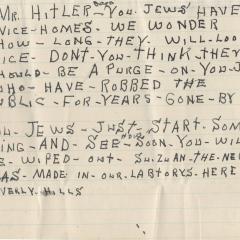 MR. HITLER - YOU JEWS HAVE
NICE - HOMES - WE WONDER
HOW - LONG - THEY. WILL - LOO
ICE - DONT - YOU - THINK THEY
HOULD - BE A PURGE - ON - YOU - J
HO - HAVE - ROBBED THE
UBLIC - FOR - YEARS - GONE - BY
U - JEWS - JUST - START SOM
ING - AND - SEE HOW SOON - YOU WIL
E - WIPED - OUT - THE - NE
AS - MADE - IN - OUR - LABTORYS. HERE
VERLY. HILLS